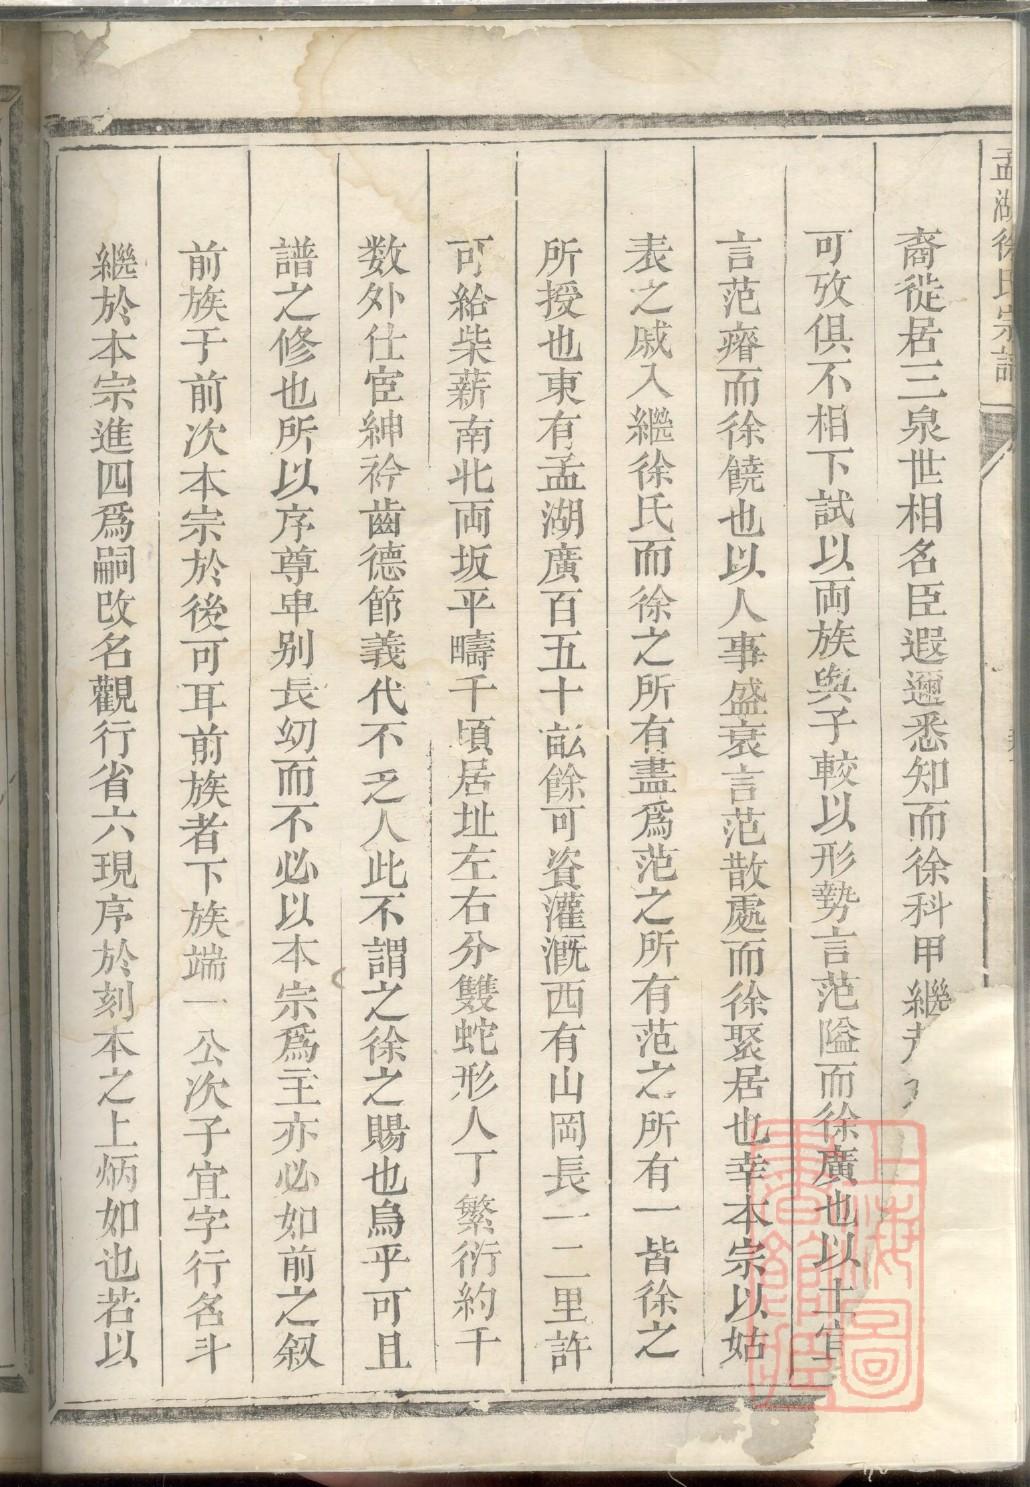 孟湖徐氏宗譜
裔從居三泉世相名臣遐邇悉知而徐科甲繼
可攷俱不相下試以両族與子較以形勢言范隘而徐廣也以土宜
言范瘠而徐饒也以人事盛衰言范散處而徐聚居也幸本宗以姑
表之戚入繼徐氏而徐之所有盡爲范之所有范之所有一皆徐之
所授也東有孟湖廣百五十畝餘可資灌溉西有山岡長一二里許
可給柴薪南北両坂平疇千頃居址左右分雙蛇形人丁繁衍約千
数外仕宦紳衿齒德節義代不乏人此不謂之徐之賜也烏乎可且
譜之修也所以序尊卑别長幼而不必以本宗爲主亦必如前之叙
前族于前次本宗於後可耳前族者下族端一公次子宜字行名斗
繼於本宗進四爲嗣改名觀行省六現序於刻本之上炳如也若以
上海圖書館藏